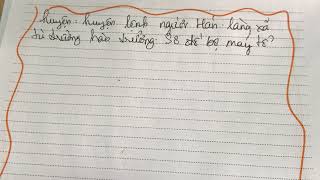 huyện: huyện lệnh người Hán làng xã
từ trưởng hào trưởng. Sơ đồ bộ máy tổ?